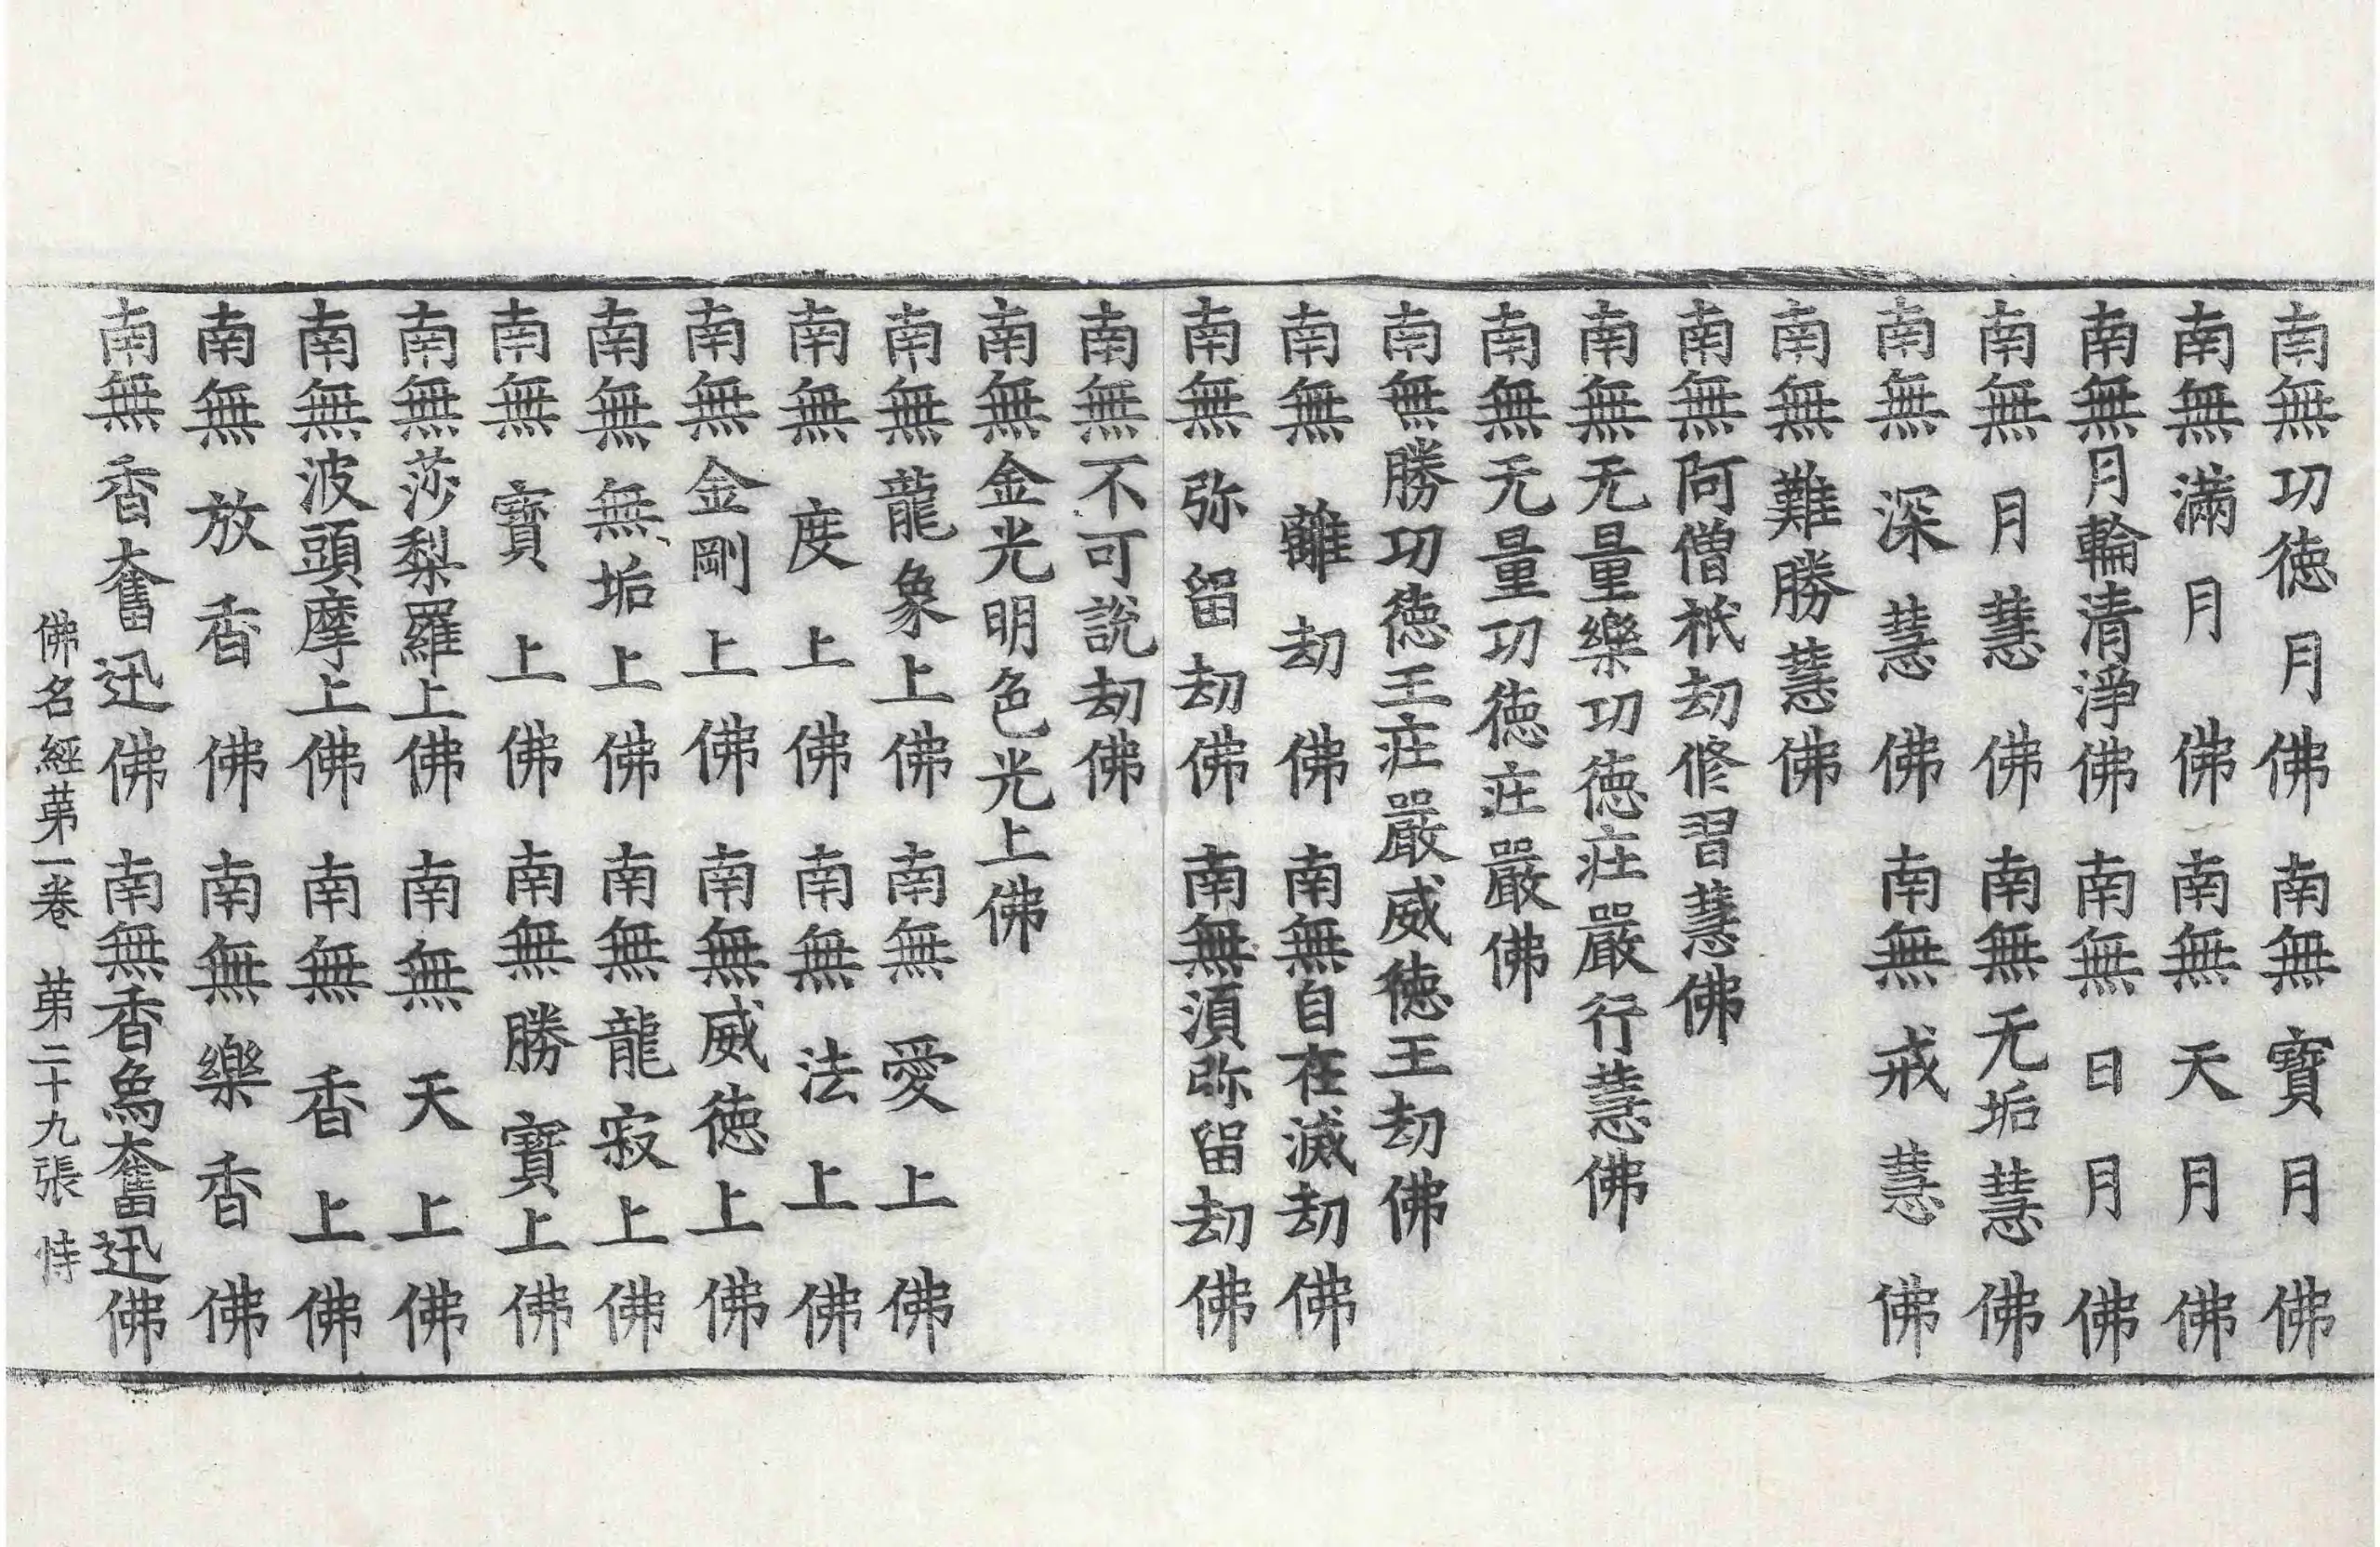 南無功徳月佛 南無寶月佛
南無滿月佛 南無天月佛
南無月輪清淨佛 南無日月佛
南無月慧佛 南無无垢慧佛
南無深慧佛 南無戒慧佛
南無難勝慧佛
南無阿僧祇劫修習慧佛
南無无量樂功徳莊嚴行慧佛
南無无量功徳莊嚴佛
南無勝功徳王莊嚴威徳王劫佛
南無離劫佛 南無自在滅劫佛
南無弥留劫佛 南無湏弥留劫佛
南無不可說劫佛
南無金光明色光上佛
南無龍象上佛 南無愛上佛
南無度上佛 南無法上佛
南無金剛上佛 南無威徳上佛
南無無垢上佛 南無龍寂上佛
南無寶上佛 南無勝寶上佛
南無莎梨羅上佛 南無天上佛
南無波頭摩上佛 南無香上佛
南無放香佛 南無樂香佛
南無香奮迅佛 南無香象奮迅佛
佛名經苐一卷 苐二十九張 恃